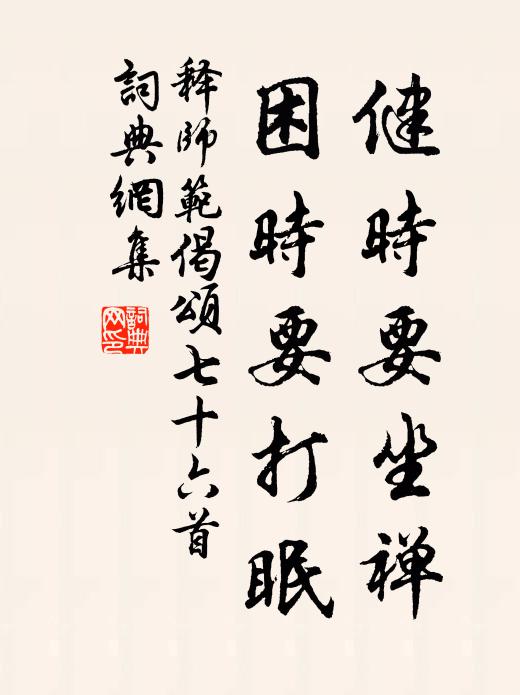 健時要坐禅
困時要打眠
释師範偈頌七十六首
詞典網集
詞典
网印